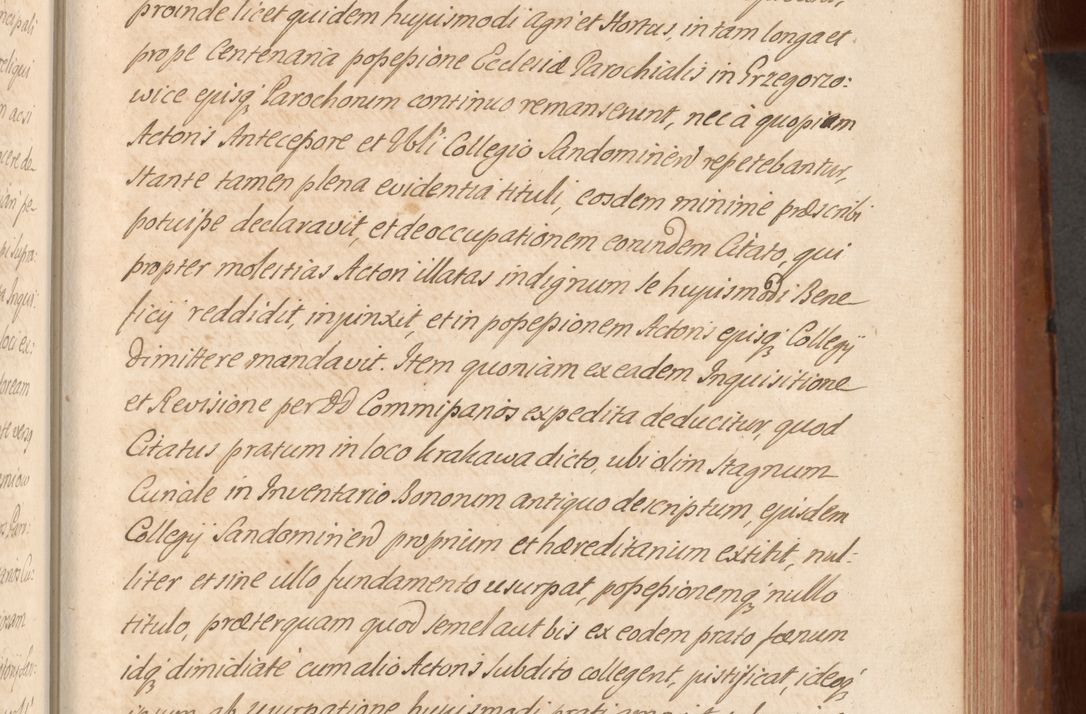 proinde licet quidem hujusmodi Agri et Hortus, in tam longa et
prope Centenaria possessione Ecclesiæ Parochialis in Grzegorzo:
wice ejusq; Parochorum continuo remanserunt, nec à quopiam
Actoris Antecessore et Vbli Collegio Sandomirien̄ repetebantur,
Stante tamen plena evidentia tituli, eosdem minime præscribi
potuisse declaravit, et de occupationem eorundem Citato, qui
propter molestias Actori illatas indignum se hujusmodi Bene
ficij reddidit, injunxit, et in possessionem Actoris ejusq; Collegij
dimittere mandavit. Item quoniam ex eadem Inquisitione
et Revisione per DD Commissarios expedita deducitur, quod
Citatus pratum in loco krakawa dicto, ubi olim Stagnum
Curiale in Inventario Bonorum antiquo descriptum, ejusdem
Collegij Sandomirien̄ proprium et hæreditarium extitit, nul-
liter et sine ullo fundamento usurpat, possessionemq; nullo
titulo, præterquam quod semel aut bis ex eodem prato fœnum
idq; dimidiate cum alio Actoris Subdito collegerit, justificat, ideoq;
ipsum ab usurpatione hujusmodi prati
ncipali
reliqui
m acsi
loci ex: